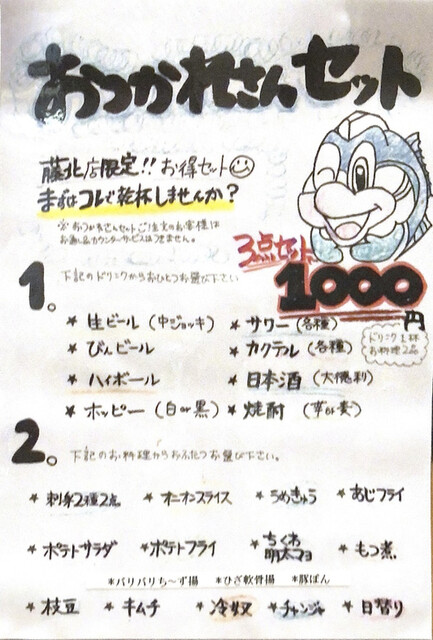 おつかれさんセット
藤北店限定!! お得セット
まずはコレで乾杯しませんか?
※おつかれさんセットご注文のお客様は
お通し品カウンターサービスはできません。
3点セット
1000円
ドリンク1杯
お料理2品
1。 下記のドリンクからおひとつお選び下さい
* 生ビール (中ジョッキ) * サワー (各種)
* びんビール * カクテル (各種)
* ハイボール * 日本酒 (大徳利)
* ホッピー (白or黒) * 焼酎 (芋or麦)
2。 下記のお料理からおふたつお選び下さい。
* 刺身2種2点 * オニオンスライス * うめきゅう * あじフライ
* ポテトサラダ * ポテトフライ * ちくわ明太マヨ * もつ煮
*パリパリち~ず揚 *ひざ軟骨揚 *豚ぽん
* 枝豆 * キムチ * 冷奴 * チャンジャ * 日替り